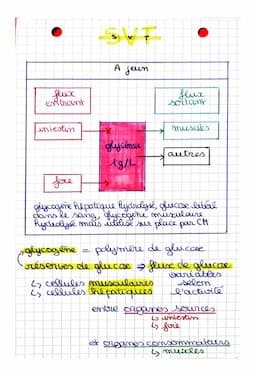 SVT
A jeun
flux entrant
flux sortant
intestin
muscles
glycémie
1g/L
autres
foie
glycogène hépatique hydrolysé, glucose libéré
dans le sang, glycogène musculaire
hydrolysé mais utilisé sur place par CM
glycogène = polymère de glucose
réserves de glucose ⇒ flux de glucose
variables
↳ cellules musculaires selon
↳ cellules hépatiques l'activité
entre organes sources
↳ intestin
↳ foie
et organes consommateurs
↳ muscles